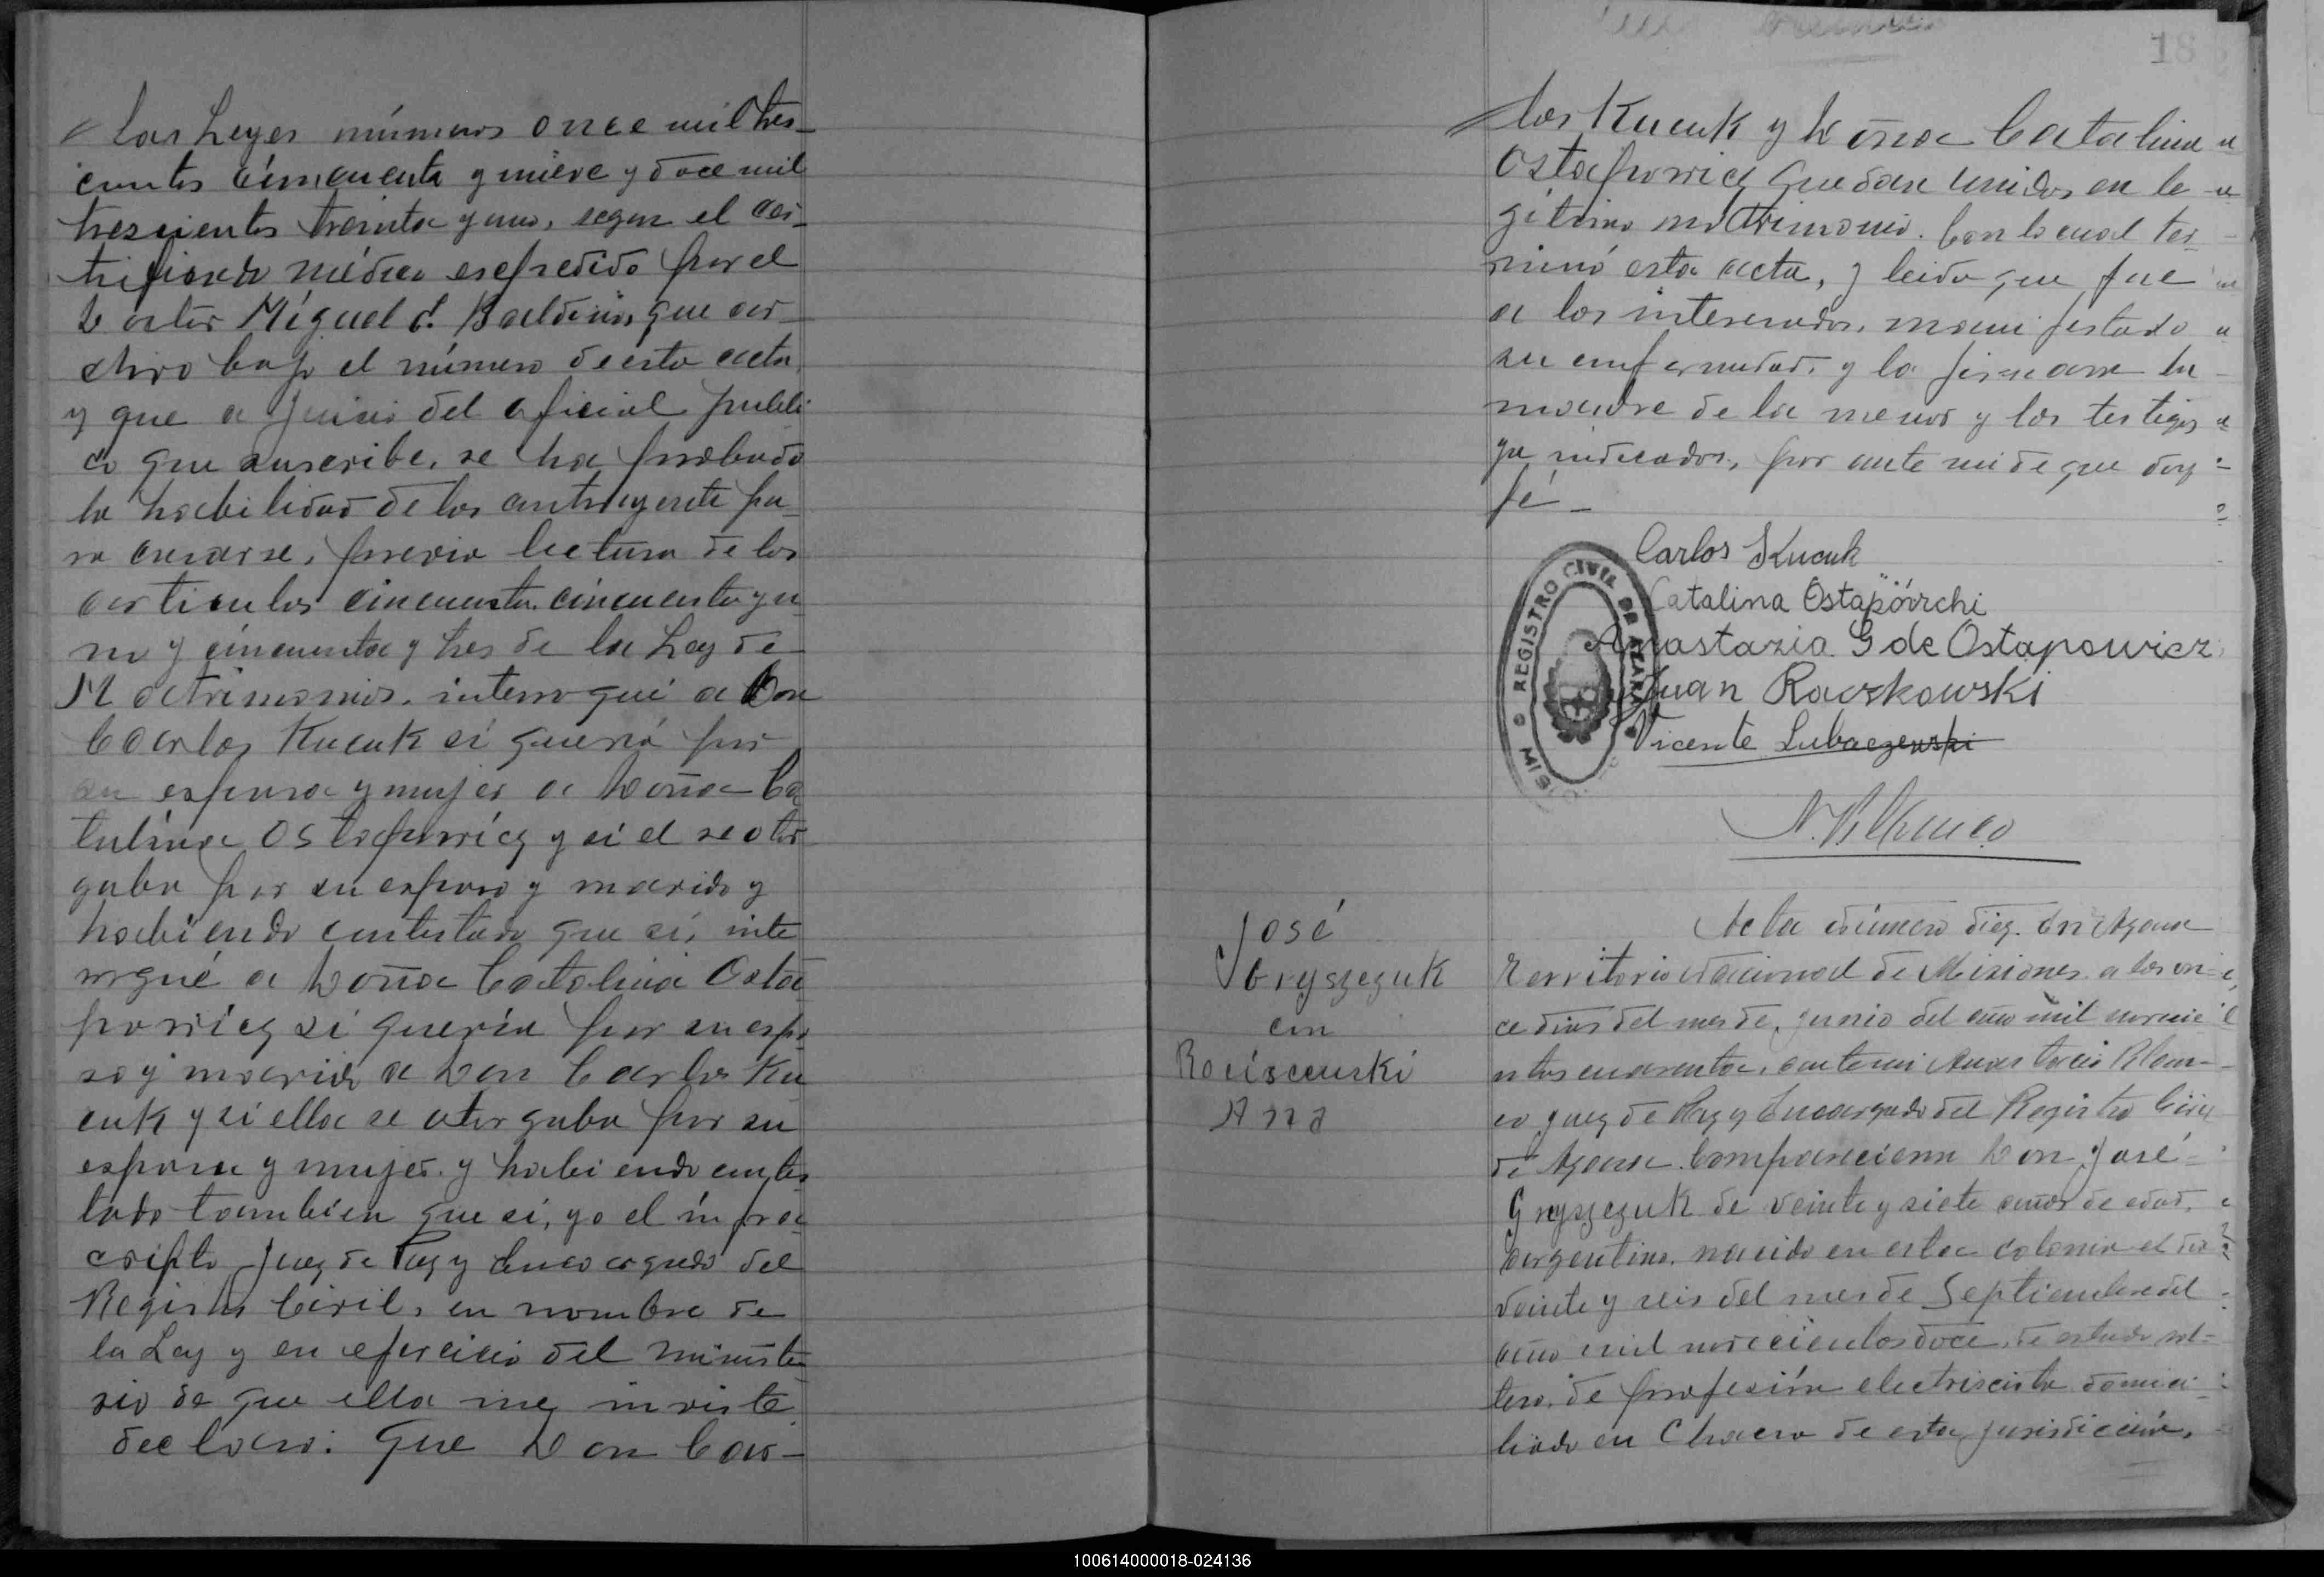 las Leyes números once mil tres-
cientos cincuenta y nueve y doce mil
trescientos treinta y uno, segun el cer-
tificado médico expedido por el
Doctor Miguel A. Baldini, que ar-
chivo bajo el número de esta acta
y que a juicio del oficial públi
co que suscribe, se ha probado
la habilidad de los contrayente pa-
ra casarse, previa lectura de los
articulos cincuenta, cincuenta y u
no y cincuenta y tres de la Ley de
Matrimonios, interrogué a Don
Carlos Kucuk si quería por
su esposa y mujer a Doña Ca
talina Ostapowicz y si el se otor
gaba por su esposo y marido y
habiendo contestado que si, inte
rrogué a Doña Catalina Osta
powicz si quería por su espo
so y marido a Don Carlos Ku
cuk y si ella se otorgaba por su
esposa y mujer y habiendo contes
tado tambien que si, yo el infra
cripto Juez de Paz y Encargado del
Registro Civil, en nombre de
la Ley y en ejercicio del ministe
rio de que ella me inviste
declaro: Que Don Car-
18
los Kucuk y Doña Catalina
Ostapowicz quedan unidos en le
gítimo matrimonio. Con lo cual ter-
minó esta acta, y leida que fue
a los interesados, manifestado
su conformidad, y la firmaron la
madre de la menor y los testigos
ya indicados, por ante mi de que doy
fé -
Carlos Kucuk
Catalina Ostapówchi
Anastazia G de Ostapowicz
Juan Raczkowski
Vicente Lubaczewski
REGISTRO CIVIL DE AZARA
MIS
N. Blanco
José
Gryszczuk
con
Rociscewski
Ana
Acta número diez. En Azara
Territorio Nacional de Misiones a los on-
ce dias del mes de Junio del año mil novecie
ntos cuarenta, ante mi Anastacio Blan-
co Juez de Paz y Encargado del Registro Civil
de Azara. Comparecieron Don José
Gryszczuk de veinte y siete años de edad,
argentino, nacido en esta colonia el dia
veinte y seis del mes de Septiembre del
año mil novecientos doce, de estado sol-
tero, de profesión electricista domici-
liado en Chacra de esta jurisdicción,
100614000018-024136